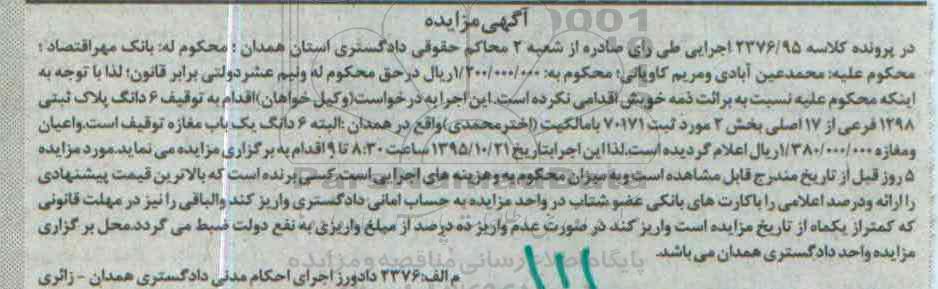 آگهی مزایده
در پرونده کلاسه ۲۳۷۶/۹۵ اجرایی طی رای صادره از شعبه ۲ محاکم حقوقی دادگستری استان همدان ؛ محکوم له: بانک مهراقتصاد ؛
محکوم علیه: محمدعین آبادی ومریم کاویانی؛ محکوم به: ۱/۲۰۰/۰۰۰/۰۰۰ریال درحق محکوم له ونیم عشردولتی برابر قانون؛ لذا با توجه به
اینکه محکوم علیه نسبت به برائت ذمه خویش اقدامی نکرده است. این اجرا به درخواست(وکیل خواهان)اقدام به توقیف ۶ دانگ پلاک ثبتی
۱۲۹۸ فرعی از ۱۷ اصلی بخش ۲ مورد ثبت ۷۰۱۷۱ بامالکیت (اخترمحمدی)واقع در همدان :البته ۶ دانگ یک باب مغازه توقیف است.واعیان
ومغازه ۱/۳۸۰/۰۰۰/۰۰۰ریال اعلام گردیده است.لذا این اجرا بتاریخ ۱۳۹۵/۱۰/۲۱ ساعت ۸:۳۰ تا ۹ اقدام به برگزاری مزایده می نماید.مورد مزایده
۵ روز قبل از تاریخ مندرج قابل مشاهده است وبه میزان محکوم به وهزینه های اجرایی است.کسی برنده است که بالاترین قیمت پیشنهادی
را ارائه ودرصد اعلامی را باکارت های بانکی عضو شتاب در واحد مزایده به حساب امانی دادگستری واریز کند والباقی را نیز در مهلت قانونی
که کمتراز یکماه از تاریخ مزایده است واریز کند در صورت عدم واریز ده درصد از مبلغ واریزی به نفع دولت ضبط می گردد.محل برگزاری
مزایده واحد دادگستری همدان می باشد.
م الف:۲۳۷۶ دادورز اجرای احکام مدنی دادگستری همدان - زائری